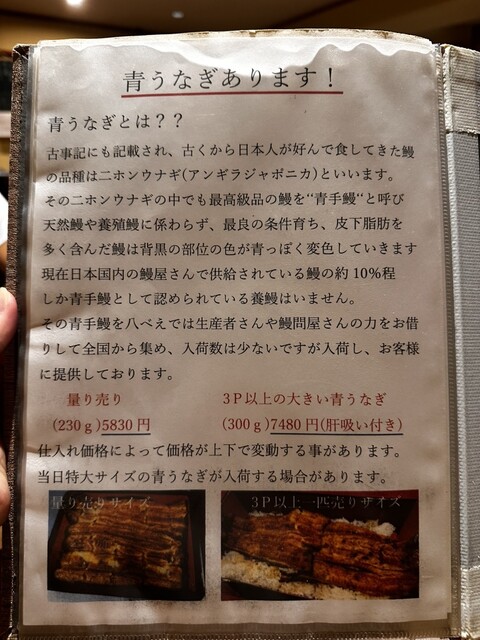 青うなぎあります！
青うなぎとは？？
古事記にも記載され、古くから日本人が好んで食してきた鰻
の品種はニホンウナギ(アンギラジャポニカ)といいます。
そのニホンウナギの中でも最高級品の鰻を“青手鰻“と呼び
天然鰻や養殖鰻に係わらず、最良の条件育ち、皮下脂肪を
多く含んだ鰻は背黒の部位の色が青っぽく変色していきます
現在日本国内の鰻屋さんで供給されている鰻の約10%程
しか青手鰻として認められている養鰻はいません。
その青手鰻を八べえでは生産者さんや鰻問屋さんの力をお借
りして全国から集め、入荷数は少ないですが入荷し、お客様
に提供しております。
量り売り
(230ｇ)5830円
3P以上の大きい青うなぎ
(300ｇ)7480円(肝吸い付き)
仕入れ価格によって価格が上下で変動する事があります。
当日特大サイズの青うなぎが入荷する場合があります。
量り売りサイズ
3P以上一匹売りサイズ